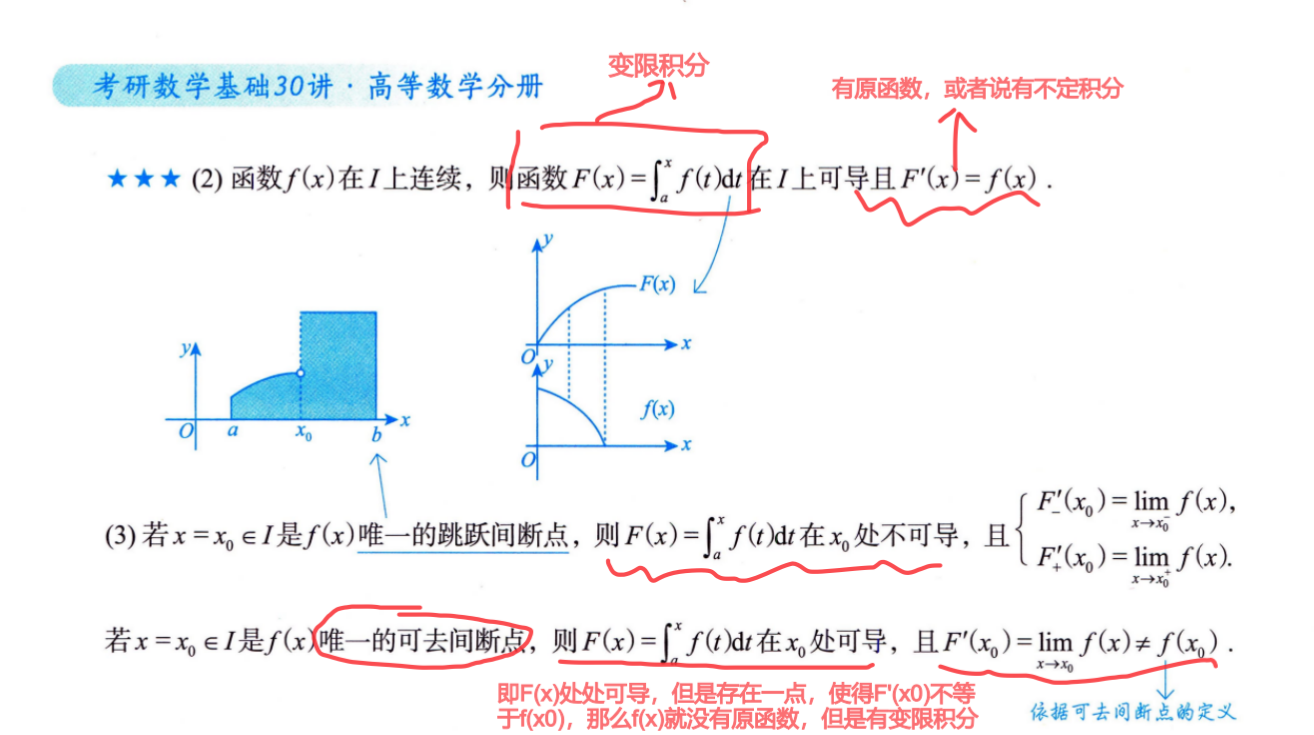 变限积分
考研数学基础30讲·高等数学分册
有原函数，或者说有不定积分
★★★ (2) 函数f(x)在I上连续，则函数F(x)=∫ₐˣ f(t)dt在I上可导且F′(x)=f(x).
y
F(x)
O
x
y
O
a
x₀
b
x
y
f(x)
O
x
(3) 若x=x₀∈I是f(x)唯一的跳跃间断点，则F(x)=∫ₐˣ f(t)dt在x₀处不可导，且{F′₋(x₀)=lim_{x→x₀⁻} f(x),
F′₊(x₀)=lim_{x→x₀⁺} f(x).
若x=x₀∈I是f(x)唯一的可去间断点，则F(x)=∫ₐˣ f(t)dt在x₀处可导，且F′(x₀)=lim_{x→x₀} f(x)≠f(x₀).
即F(x)处处可导，但是存在一点，使得F'(x0)不等
于f(x0)，那么f(x)就没有原函数，但是有变限积分
依据可去间断点的定义